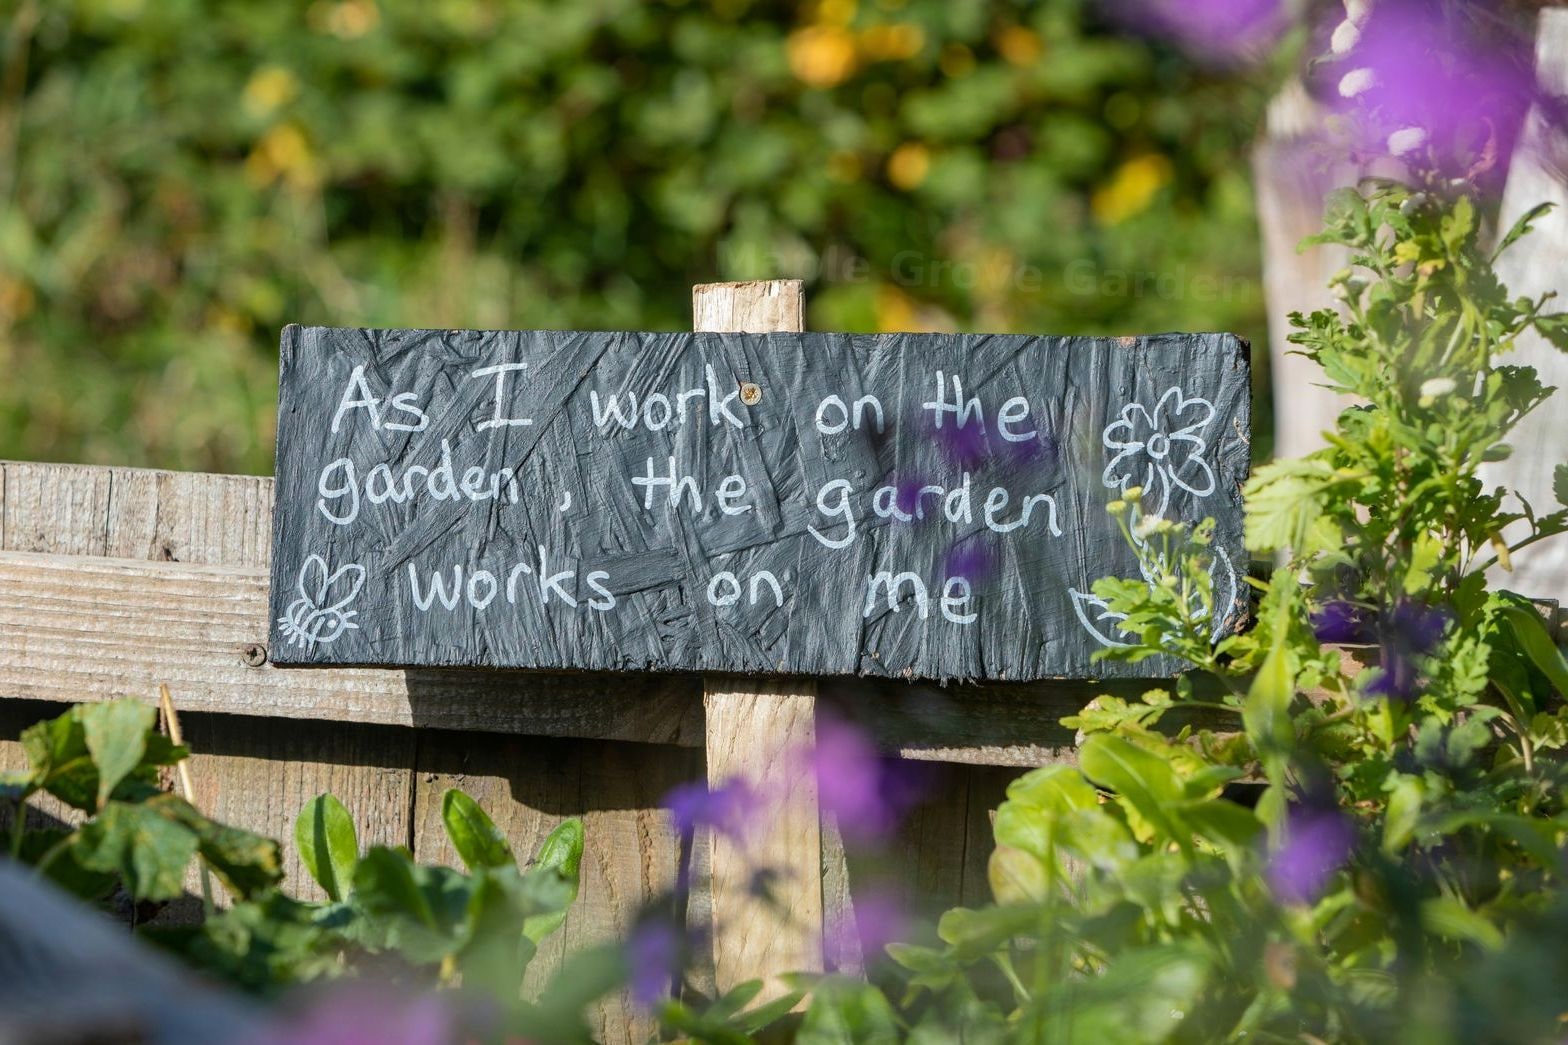 Maple Grove Garden
As I work on the
garden, the garden
works on me